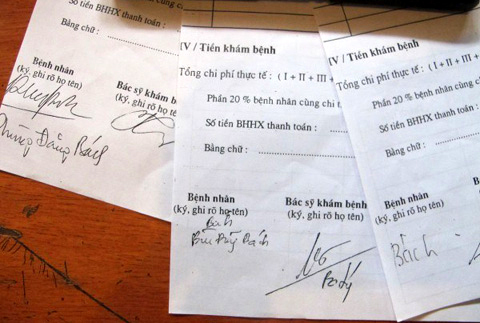 Số tiền BHHX thanh toán :
Bằng chữ :
Bệnh nhân
(ký, ghi rõ họ tên)
Bác sỹ khám b
(ký, ghi rõ họ t
IV / Tiền khám bệnh
Tổng chi phí thực tế : ( I + II + III +
Phần 20 % bệnh nhân cùng chi t
Số tiền BHHX thanh toán :
Bằng chữ :
Bệnh nhân
(ký, ghi rõ họ tên)
Bách
Bách
Bác sỹ khám bệnh
(ký, ghi rõ họ tên)
IV / Tiền khám bệnh
Tổng chi phí thực tế : ( I + II +
Phần 20 % bệnh nhân cù
Số tiền BHHX thanh to
Bằng chữ :
Bệnh nhân
(ký, ghi rõ họ tên)
Bách
Bác s
(ký, g